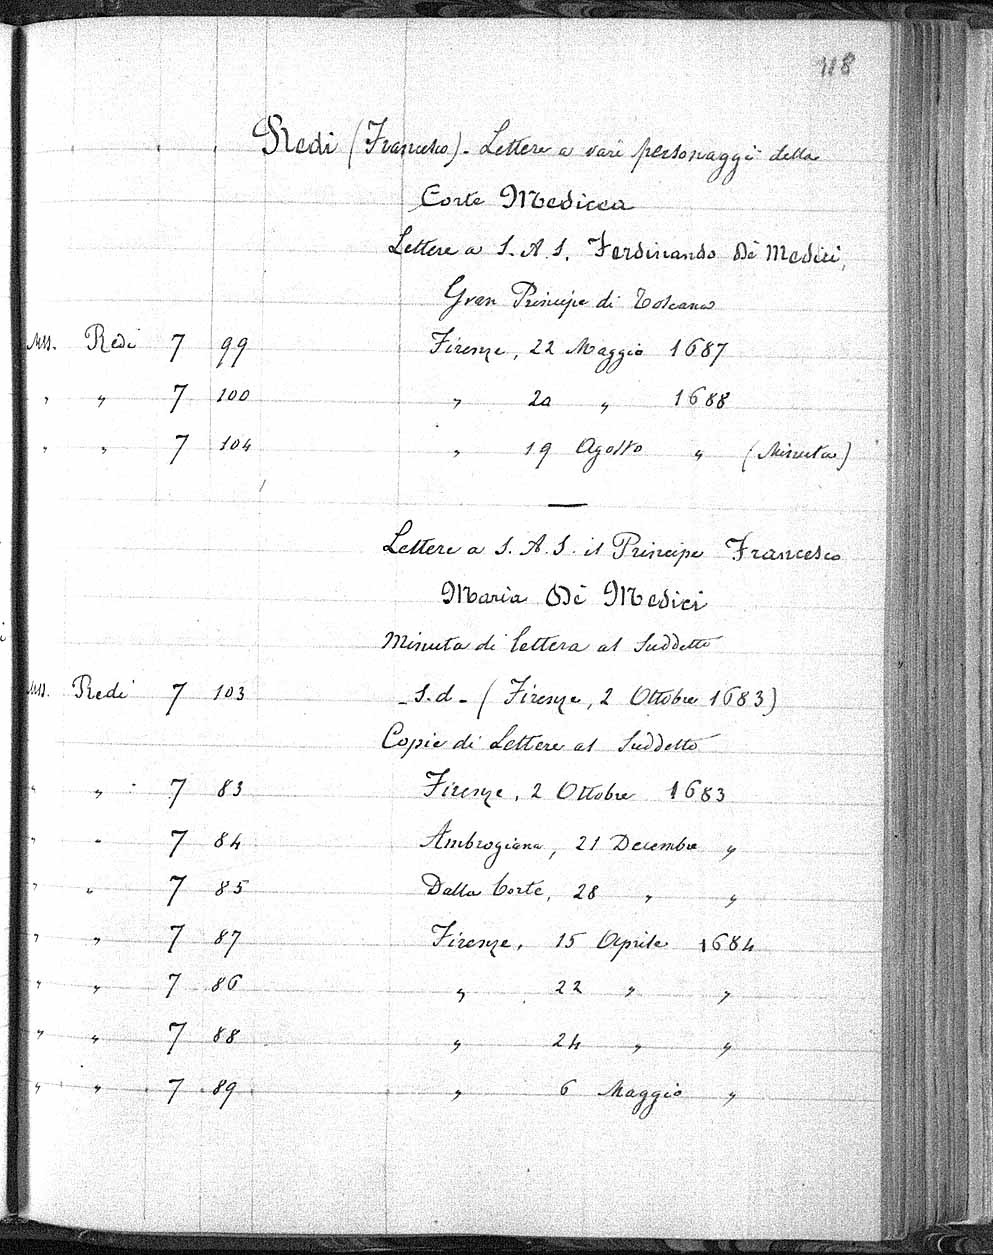 118
Redi (Francesco) - Lettere a vari personaggi della
Corte Medicea
Lettere a S. A. S. Ferdinando Dè Medici,
Gran Principe di Toscana
Mss. Redi 7 99 Firenze, 22 Maggio 1687
" " 7 100 " 20 " 1688
" " 7 104 " 19 Agosto " (Minuta)
Lettere a S. A. S. il Principe Francesco
Maria Dè Medici
Minuta di lettera al Suddetto
Mss. Redi 7 103 - S. d. - (Firenze, 2 Ottobre 1683)
Copie di Lettere al Suddetto
" " 7 83 Firenze, 2 Ottobre 1683
" " 7 84 Ambrogiana, 21 Decembre "
" " 7 85 Dalla Corte, 28 " "
" " 7 87 Firenze, 15 Aprile 1684
" " 7 86 " 22 " "
" " 7 88 " 24 " "
" " 7 89 " 6 Maggio "